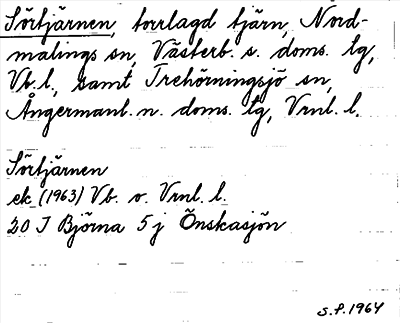 Sörtjärnen, torrlagd tjärn, Nord-
malings sn, Västerb. s. doms. lg,
Vb. l., samt Trehörningsjö sn,
Ångermanl. n. doms. lg, Vrnl. l.
Sörtjärnen
ek (1963) Vb. o. Vrnl. l.
20 J Björna 5 j Önskasjön
S.P. 1964